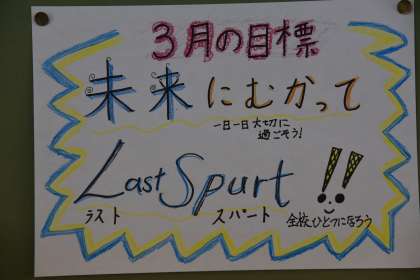 3月の目標
未来にむかって
一日一日大切に
過ごそう!
Last Spurt!!
ラスト スパート
全校ひとつになろう